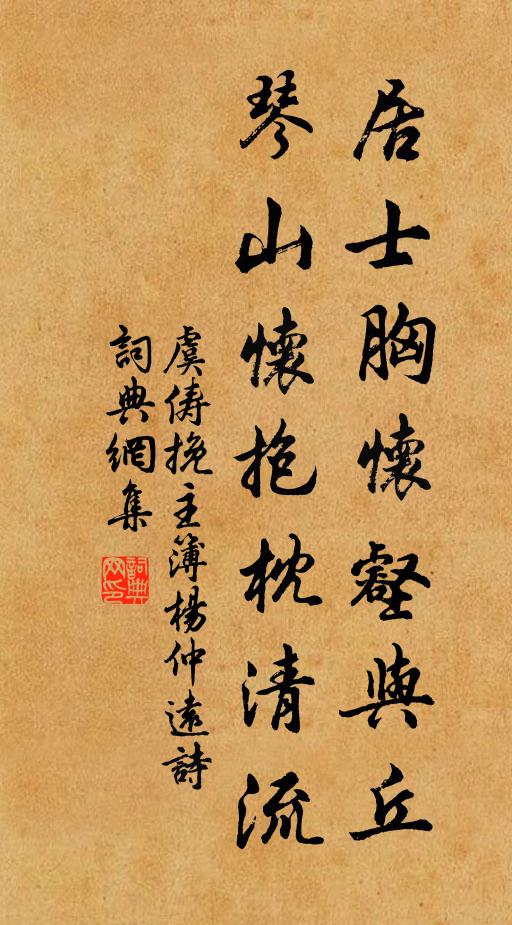 居士胸懷壑與丘
琴山懷抱枕清流
虞儔挽主簿楊仲遠詩
詞典網集
詞典網印